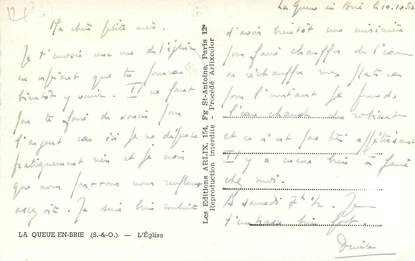 La Queue en Brie le 10.10.52
Ma chère petite
Je t'envoie une vue de l'église
en espérant que tu pourras
bientôt y venir. Il ne faut
pas te faire de soucis pour
l'argent car ici je ne dépense
pratiquement rien et je vois
que nous pourrons nous
Je suis bien contente
d'avoir bientôt une cuisinière
pour faire chauffer de l'eau
ou réchauffer mes plats car
pour l'instant je prends
l'eau chaude du robinet
et ce n'est pas très appétissant
Il y a encore bien à faire
chez moi.
A samedi 7h½. Je
t'embrasse bien fort.
Denise
Les Editions ARLIX, 154, Fg St-Antoine, Paris 12e
Reproduction interdite - Procédé Arlixcolor
LA QUEUE-EN-BRIE (S.-&-O.) — L'Église